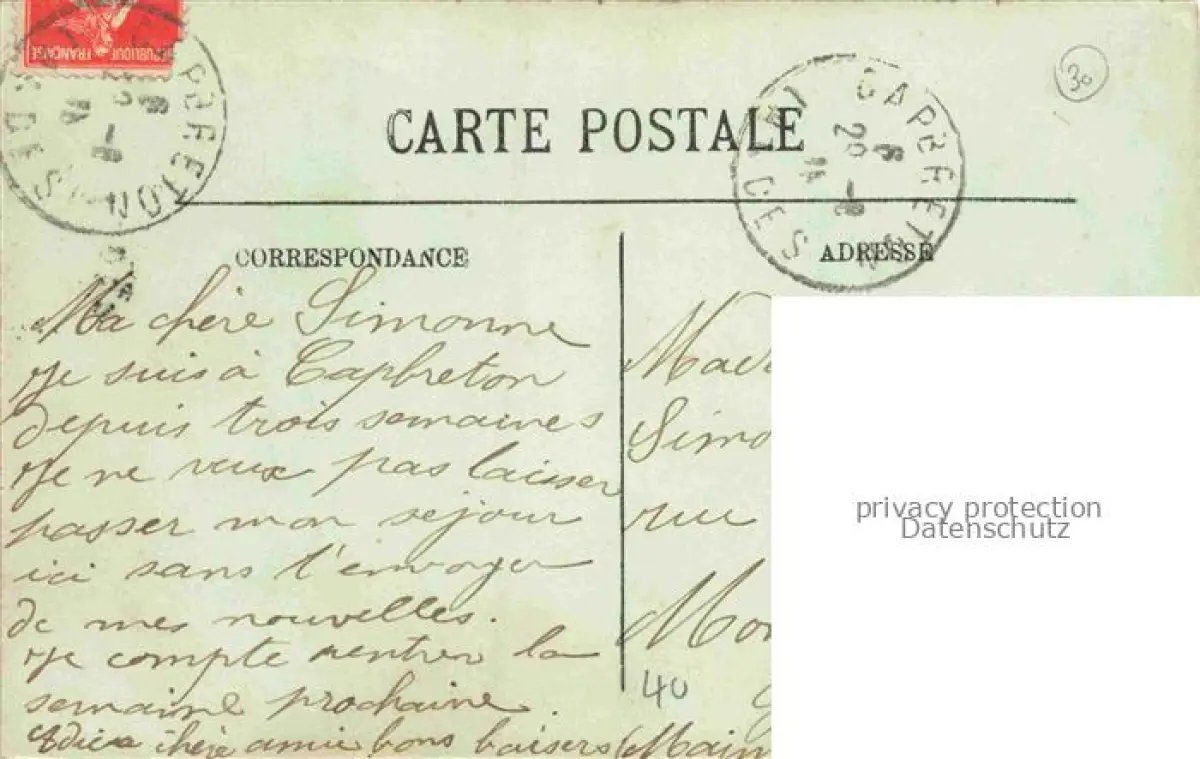 REPUBLIQUE FRANÇAISE
CAPBRETON
LANDES
30
CARTE POSTALE
CAPBRETON
6
29 -8
LANDES
CORRESPONDANCE
ADRESSE
Ma chère Simonne
Je suis à Capbreton
depuis trois semaines
Je ne veux pas laisser
passer mon sejour
ici sans t'envoyer
de mes nouvelles.
Je compte rentrer la
semaine prochaine.
Adieu chère amie bons baisers
Mad
Simo
rue
Mon
40
(Main
privacy protection
Datenschutz